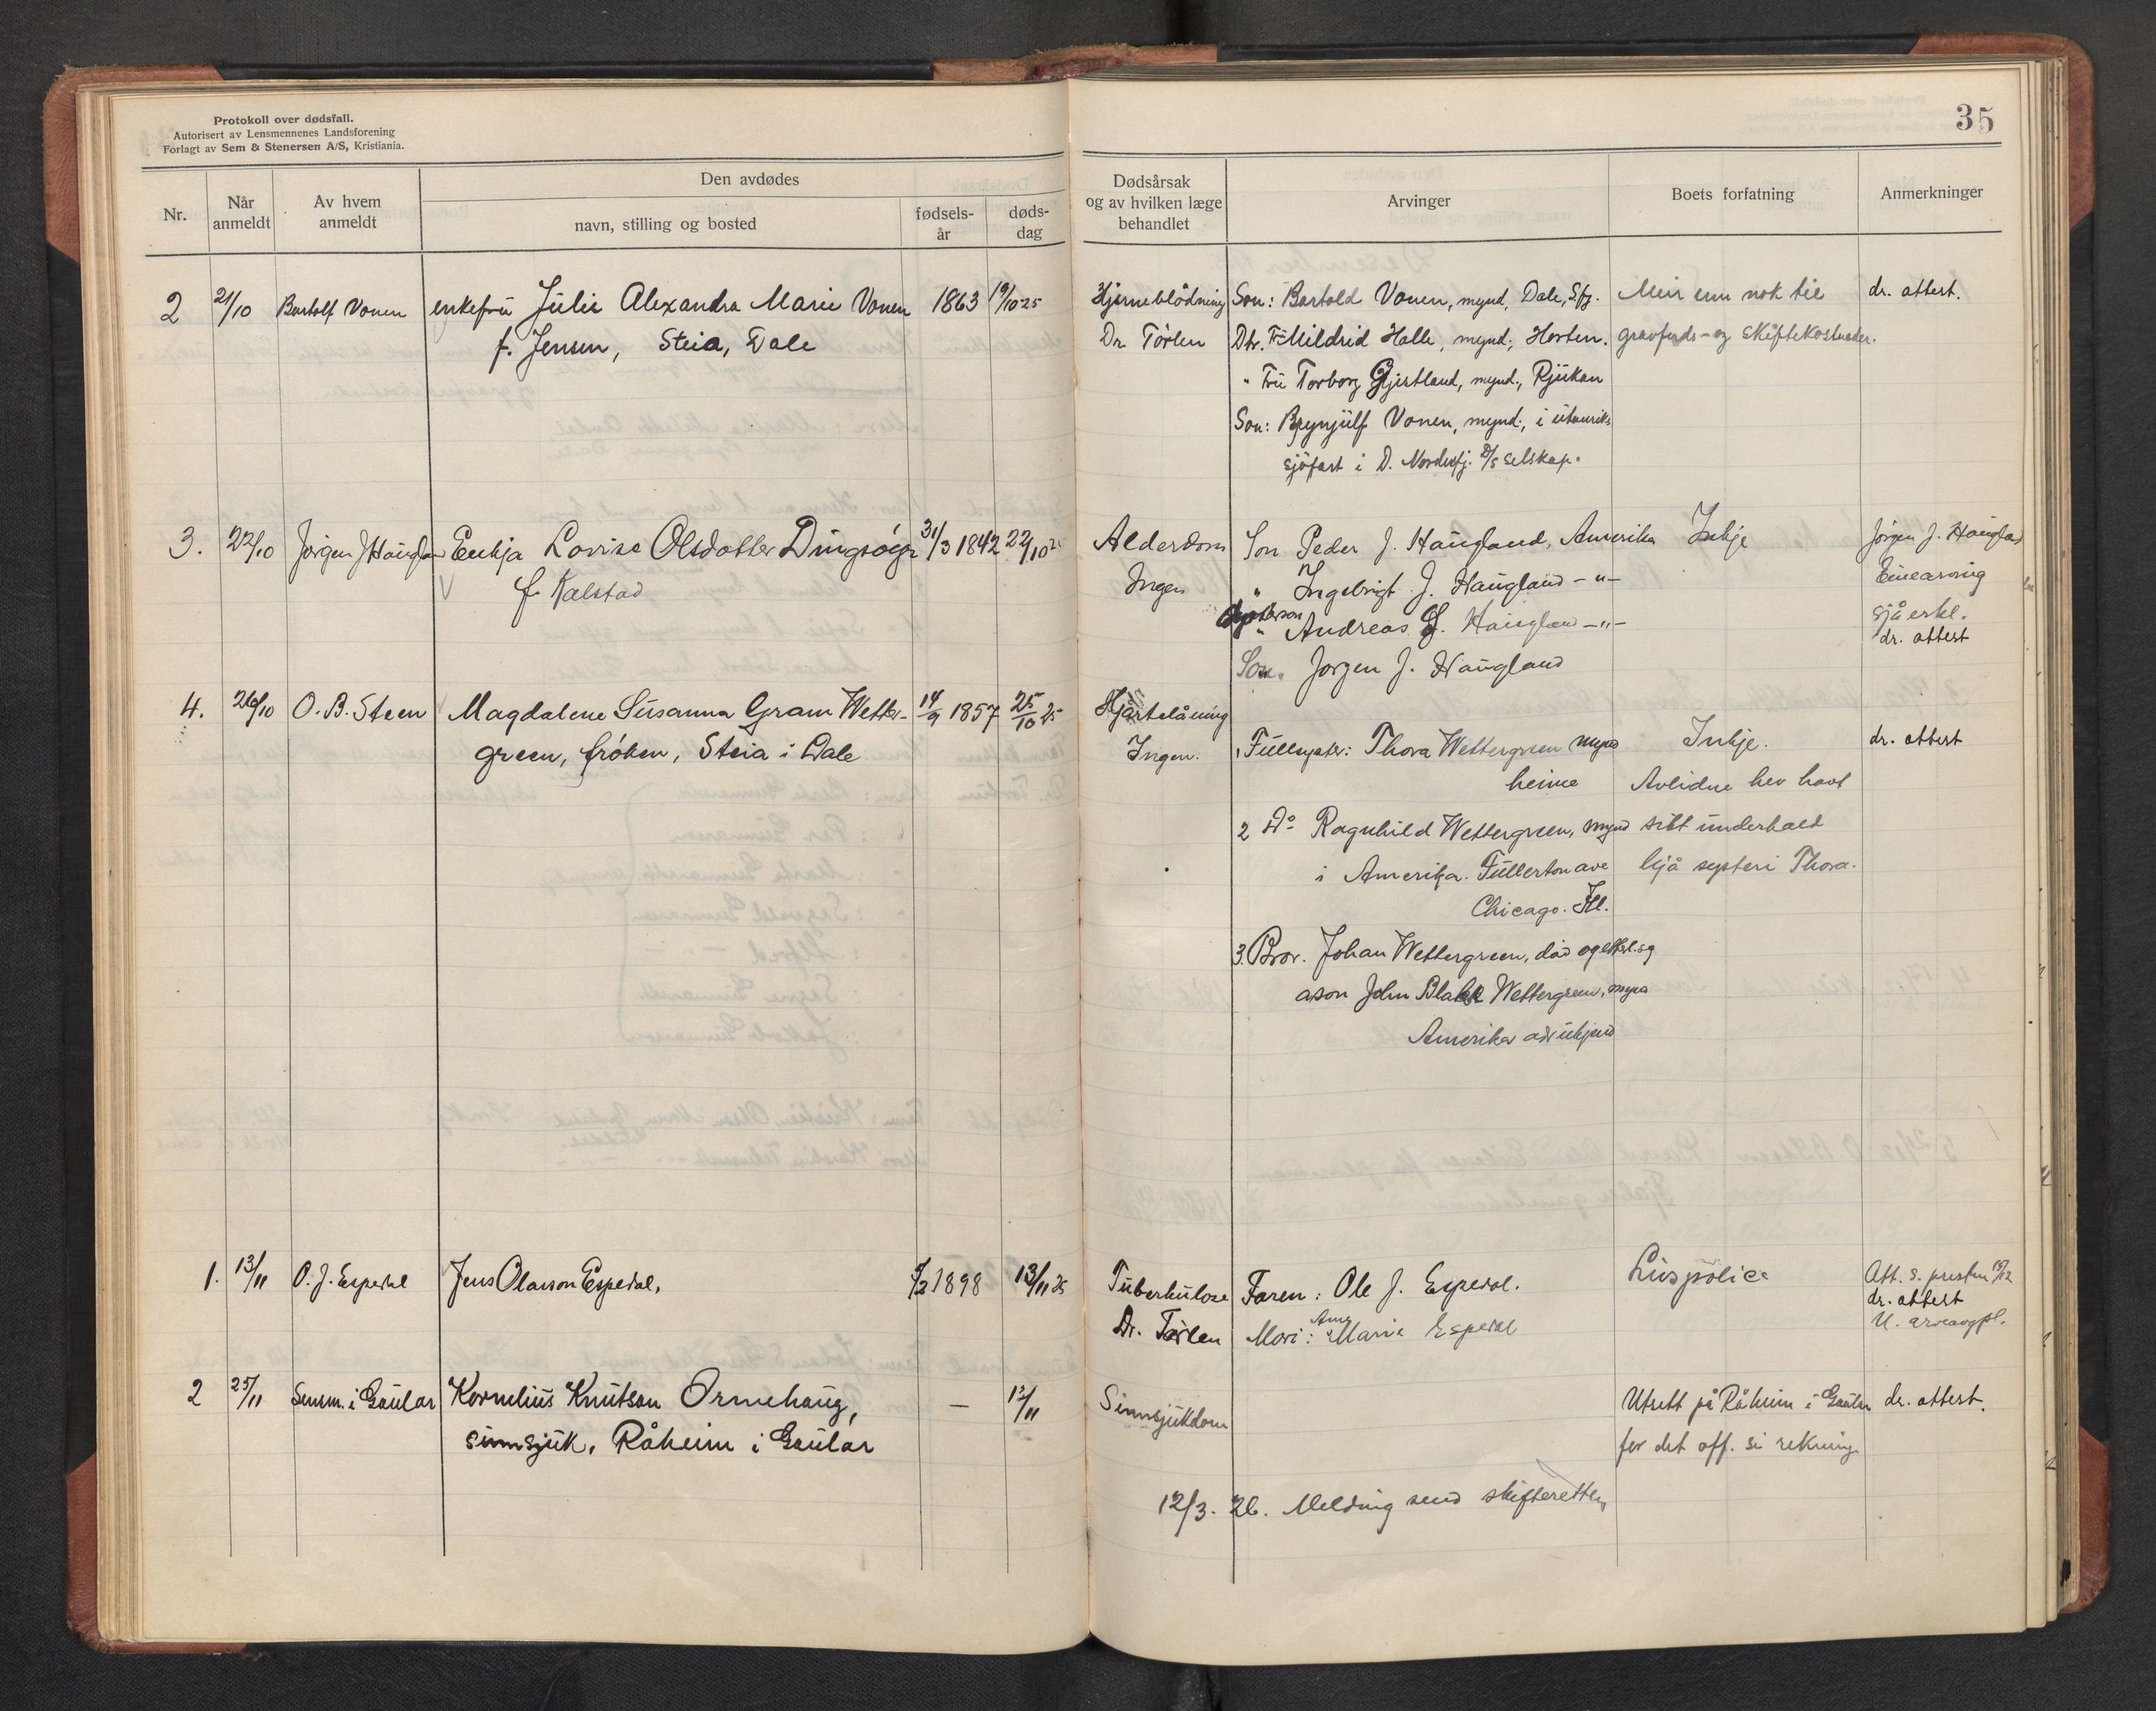 Protokoll over dødsfall.
Autorisert av Lensmennenes Landsforening
Forlagt av Sem & Stenersen A/S, Kristiania.
35
Nr.
Når anmeldt
Av hvem anmeldt
Den avdødes
navn, stilling og bosted
fødsels-år
døds-dag
Dødsårsak og av hvilken læge behandlet
Arvinger
Boets forfatning
Anmerkninger
2 21/10 Bartolf Vonen enkefrü Julie Alexandra Marie Vonen 1863 19/10 25
f. Jensen, Steia, Dale
Hjerneblödning
Dr. Törlen
Son: Bartold Vonen, mynd, Dale, Sfj.
Dtr. Frü Mildrid Halle, mynd., Horten.
" Frü Torborg Gjestland, mynd., Rjükan
Son: Brynjülf Vonen, mynd., i utanriks
sjöfart i D. Nordenfj. D/s selskap.
Meir enn nok til
gravferds- og skiftekostnader.
dr. attest.
3. 22/10 Jørgen J Haugland Enkja Lovise Olsdotter Dingsøyr 31/3 1842 22/10 25
f. Kalstad
Alderdom
Ingen
Son Peder J. Haugland, Amerika
" Ingebrigt J. Haugland -"-
Dotterson Andreas J. Haugland -"-
Son. Jorgen J. Haugland
Inkje
Jörgen J. Haugland
Einearving
sjå erkl.
dr. attest
4. 26/10 O. B. Steen Magdalene Susanna Gram Wetter- 14/9 1857 25/10 25
green, frøken, Steia i Dale
Hjartelåming
Ingen.
1 Füllsyster: Thora Wettergreen mynd
heime
2 Do Ragnhild Wettergreen, mynd
i Amerika. Füllerton ave
Chicago. Ill.
3. Bror. Johan Wettergreen, død og etterl. seg
ason John Blake Wettergreen, mynd
Amerika adr ukjend
Inkje.
Avlidne hev havt
sitt underhald
hjå systeri Thora.
dr. attest
1. 13/11 O. J. Espedal Jens Olavson Espedal, 1898 13/11 25
Tüberkülose
Dr. Törlen
Faren: Ole J. Espedal.
Mori: Ane Marie Espedal
Livspolice
Att. s. presten
dr. attest
U. arveavgpl.
2 25/11 Lensm. i Gaular Kornelius Knutson Ormehaug, — 12/11
sinnsjuk, Råheim i Gaular
Sinnsjukdom
Utsett på Råheim i Gaular
for det off. si rekning
dr. attest.
12/3. 26. Melding send skifteretten